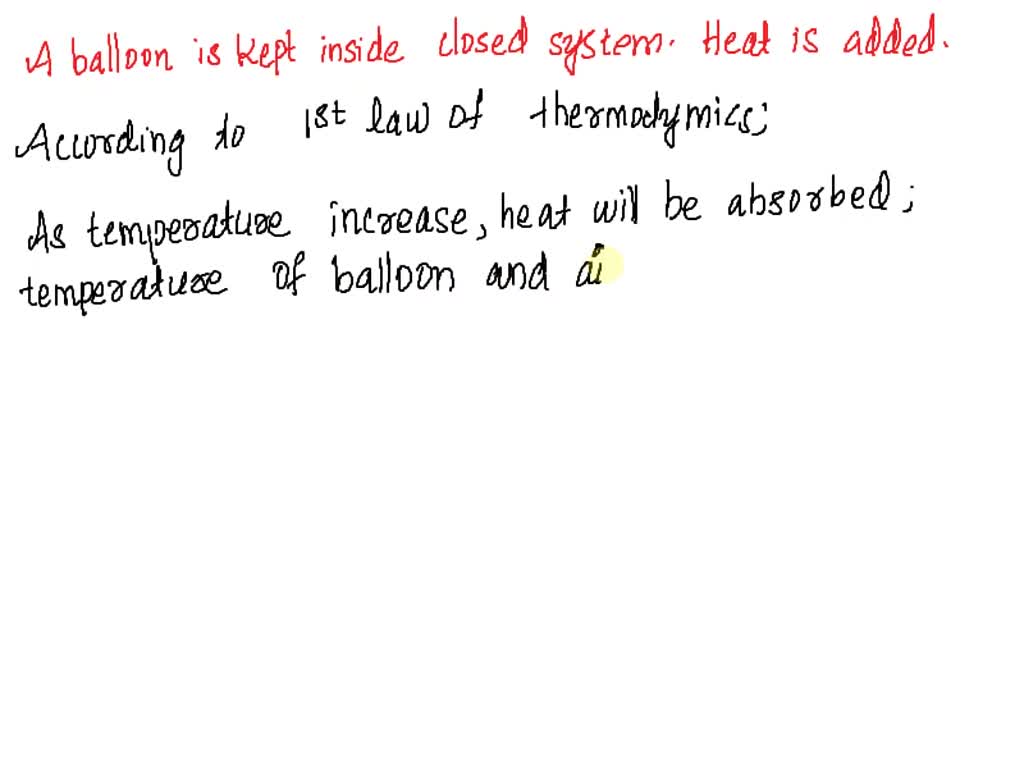 A balloon is kept inside closed system. Heat is added.
According to 1st law of thermodymics;
As temperature increase, heat will be absorbed;
temperature of balloon and ai